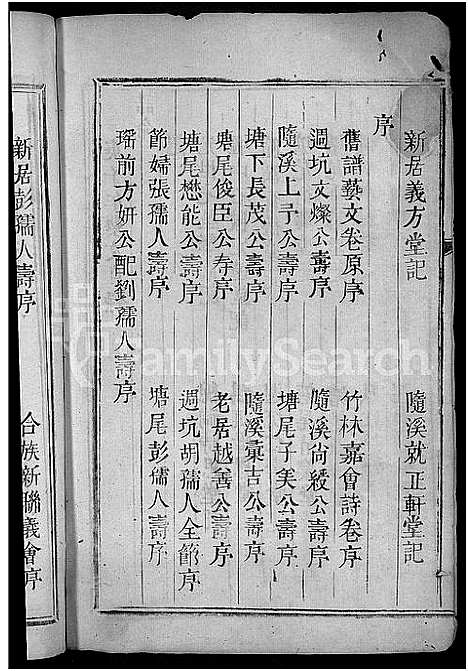 新居義方堂記　隨溪就正軒堂記
序
舊譜藝文卷原序　竹林嘉會詩卷序
週坑文燦公壽序　隨溪尙綬公壽序
隨溪上于公壽序　塘尾子美公壽序
塘下長茂公壽序　隨溪彙吉公壽序
塘尾俊臣公寿序　老居越善公壽序
塘尾懋能公壽序　週坑胡孺人全節序
節婦張孺人壽序　塘尾彭孺人壽序
瑶前方妍公配劉孺人壽序
新居彭孺人壽序　合族新聯義會序
FamilySearch